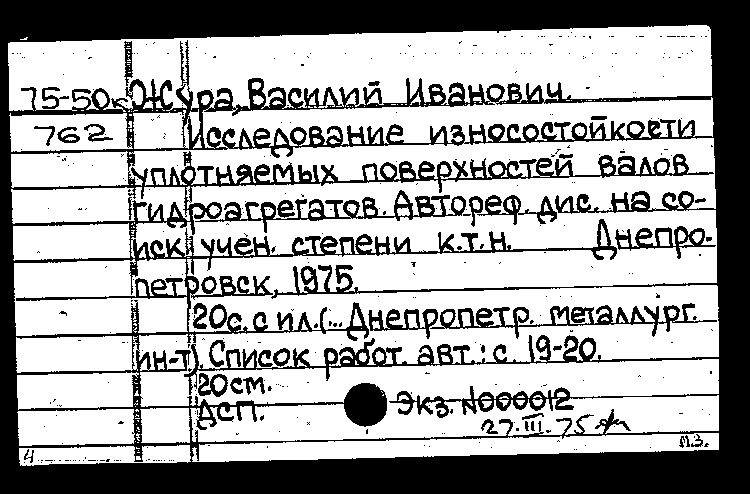 75-50к Жура, Василий Иванович.
762 Исследование износостойкости
уплотняемых поверхностей валов
гидроагрегатов. Автореф. дис. на со-
иск. учен. степени к.т.н. Днепро-
петровск, 1975.
20с. с ил. (... Днепропетр. металлург.
ин-т). Список работ. авт.: с. 19-20.
20см.
ДСП. Экз. N000012
27.III.75
4 М.З.